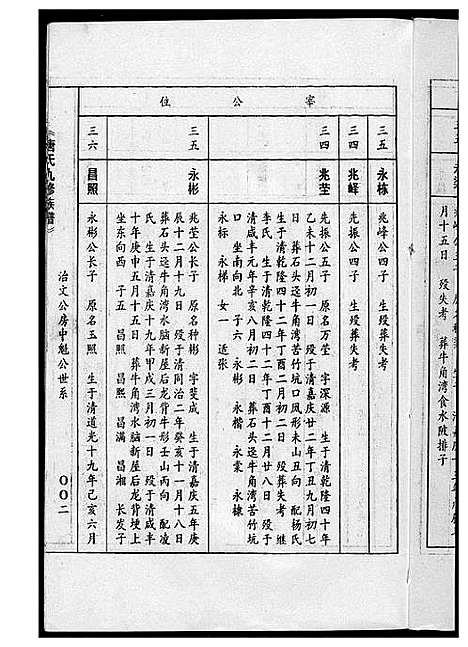 三五
永栋
兆峰公子 生殁葬失考
三四
兆峰
先振公四子 生殁葬失考
三四
兆莹
先振公五子 原名万莹 字深源 生于清乾隆四十年
乙未十二月初一日 殁于清嘉庆廿二年丁丑九月初七
日 葬石头迳牛角湾苦竹坑口凤形未山丑向 配杨氏
生于清乾隆四十二年丁酉二月初二日 殁葬失考 继
李氏 生于清乾隆四十二年丁酉十二月廿八日 殁于
清咸丰元年辛亥八月初二日 葬石头迳牛角湾苦竹坑
口 坐南向北 子六 永彬 永楷 永棠 永棣
永标 永梯 女一 适张
三五
永彬
兆莹公长子 原名种彬 字斐成 生于清嘉庆五年庚
辰十二月十九日 殁于清同治二年癸亥十一月十八日
葬牛角湾水脑新屋后龙背牛形壬山丙向 配凌
氏 生于清嘉庆十九年甲戌三月初一日 殁于清咸丰
十年庚申五月十五日 葬牛角湾水脑新屋后龙背埂上
坐东向西 子五 昌照 昌熙 昌满 昌湘 长发子
三六
昌照
永彬公长子 原名玉照 生于清道光十九年己亥六月
位公宰
唐氏九修族谱
治文公房中魁公世系
〇〇二
月十五日 殁失考 葬牛角湾食水陂排子